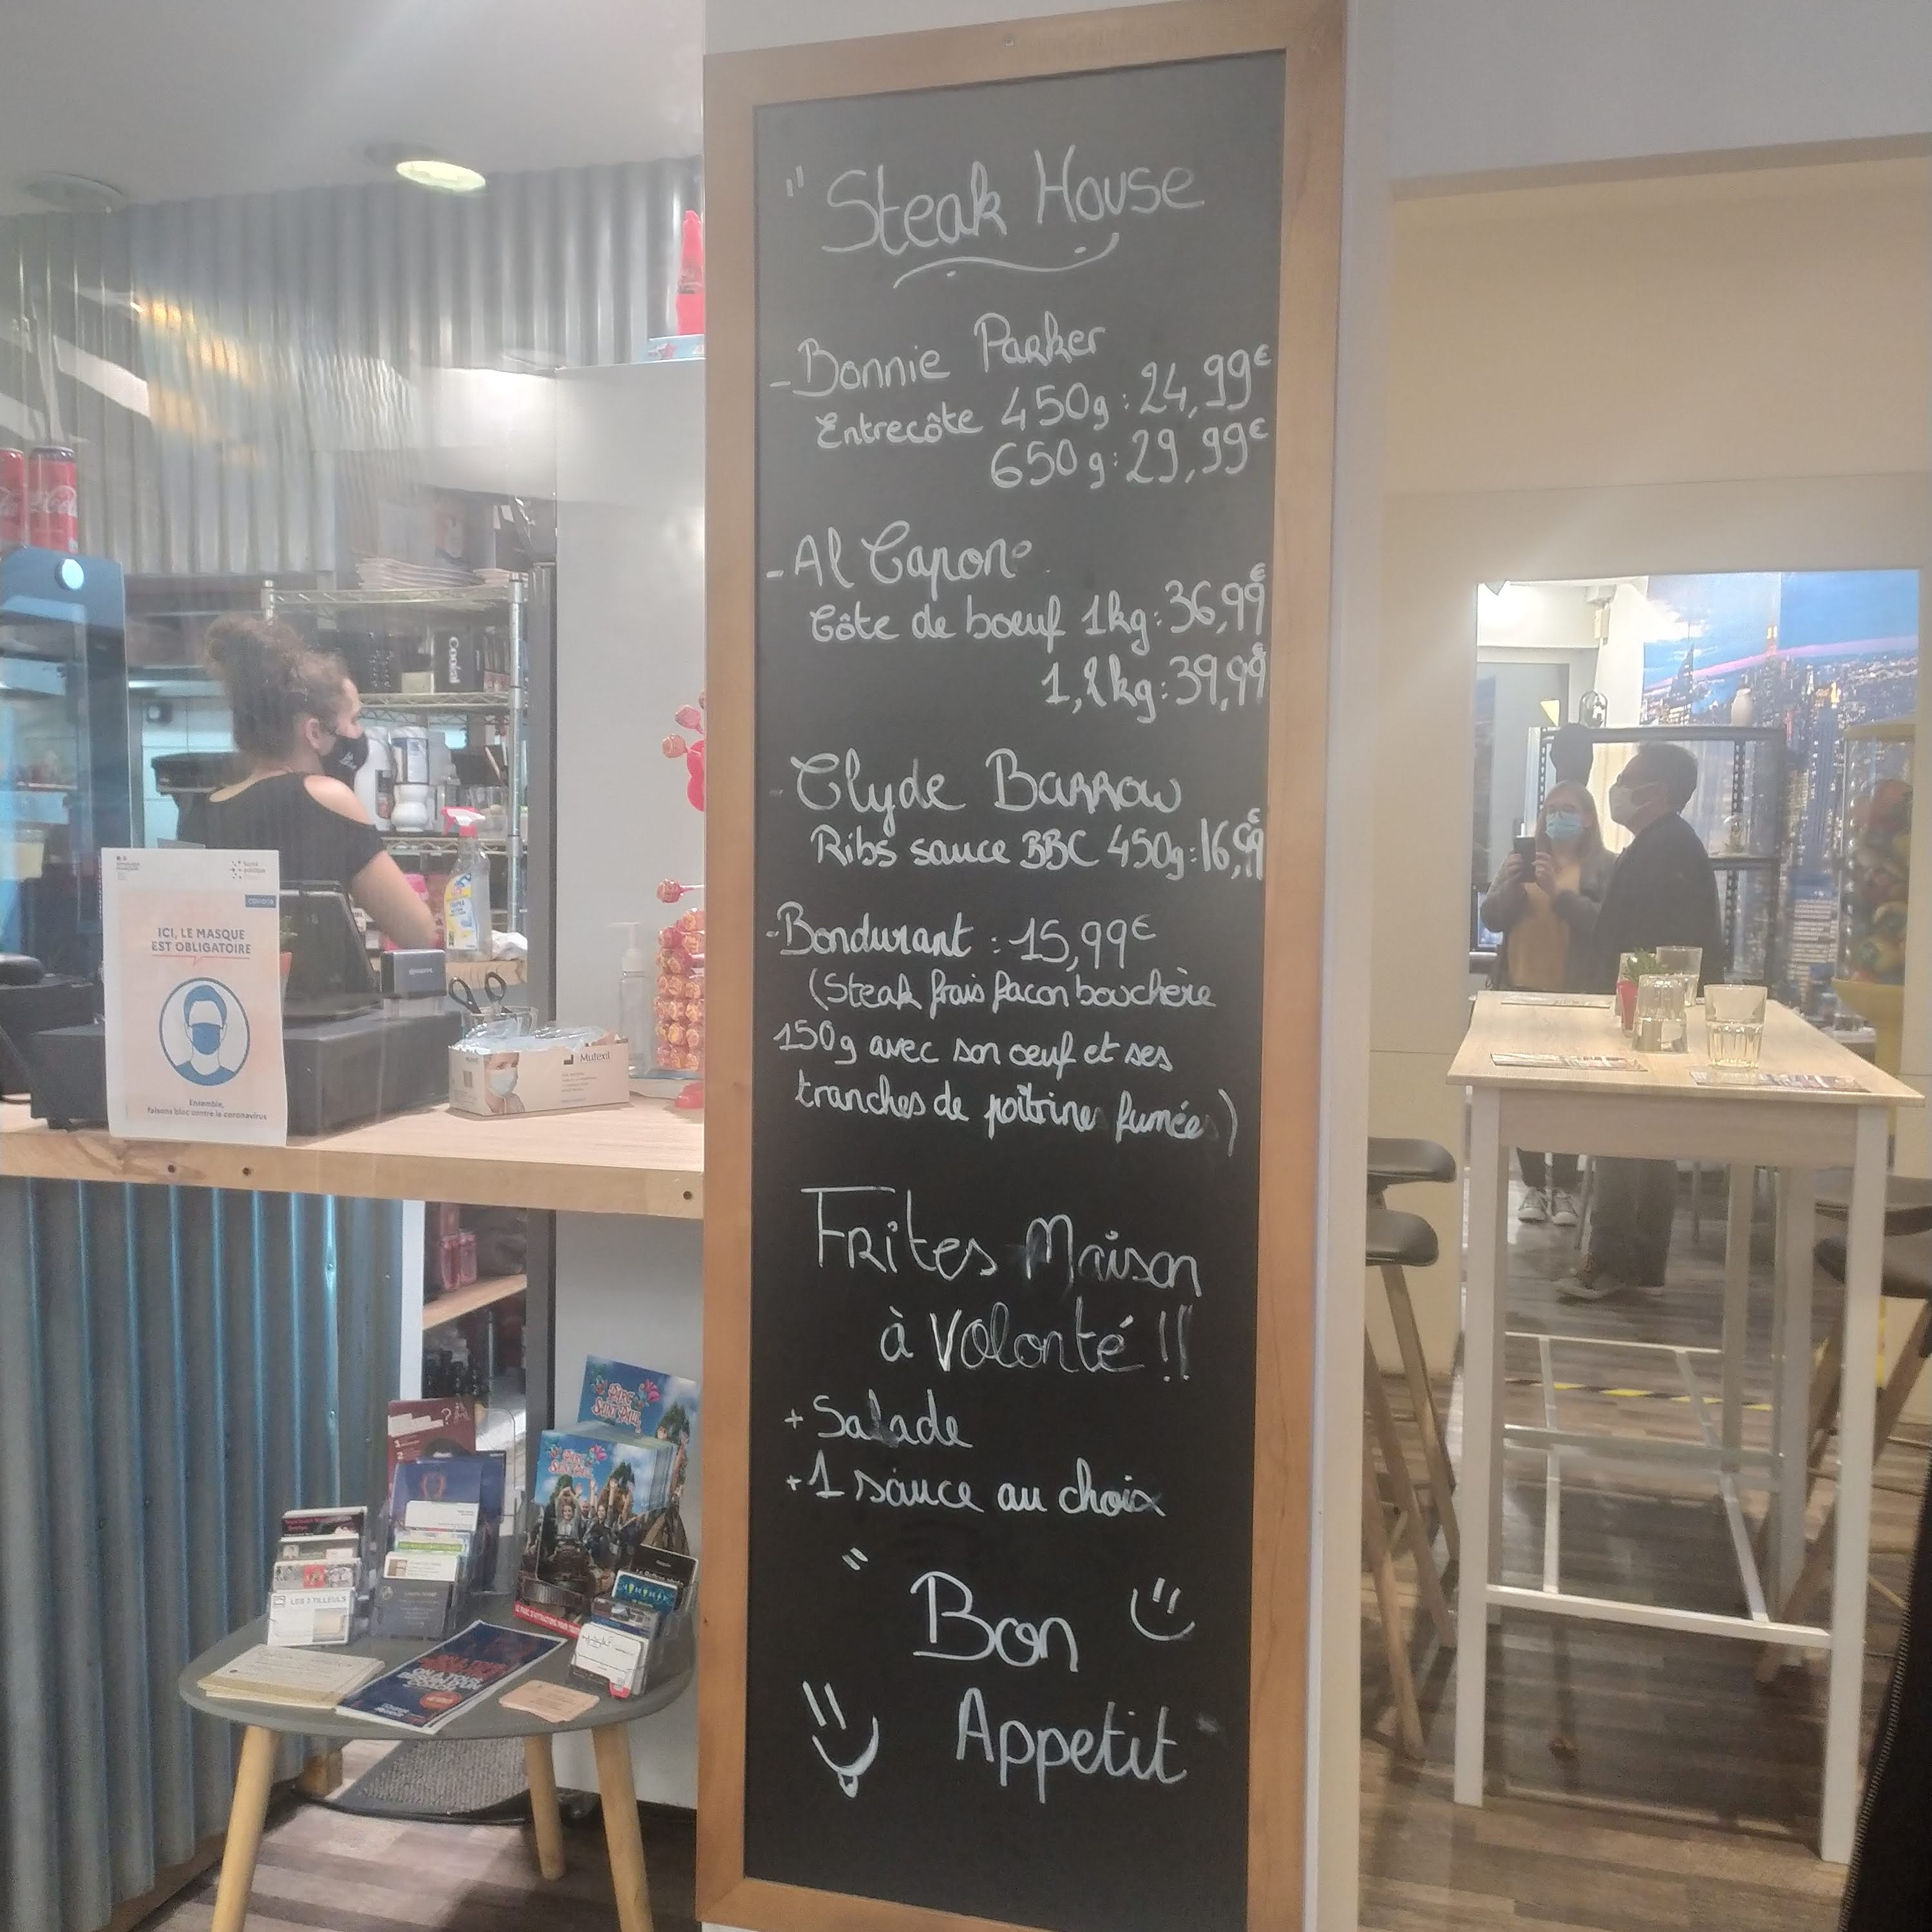 " Steak House
- Bonnie Parker
Entrecôte 450g : 24,99€
650g : 29,99€
- Al Capone
Côte de boeuf 1kg : 36,99€
1,2kg : 39,99€
- Clyde Barrow
Ribs sauce BBC 450g : 16,99€
- Bondurant : 15,99€
(Steak frais facon bouchère
150g avec son oeuf et ses
tranches de poîtrines fumées)
Frites Maison
à Volonté !!
+ Salade
+ 1 sauce au choix
" Bon
Appetit
ICI, LE MASQUE
EST OBLIGATOIRE
Ensemble,
faisons bloc contre le coronavirus
Mutexil
PARC
SAINT PAUL
PARC
SAINT PAUL
LES 3 TILLEULS